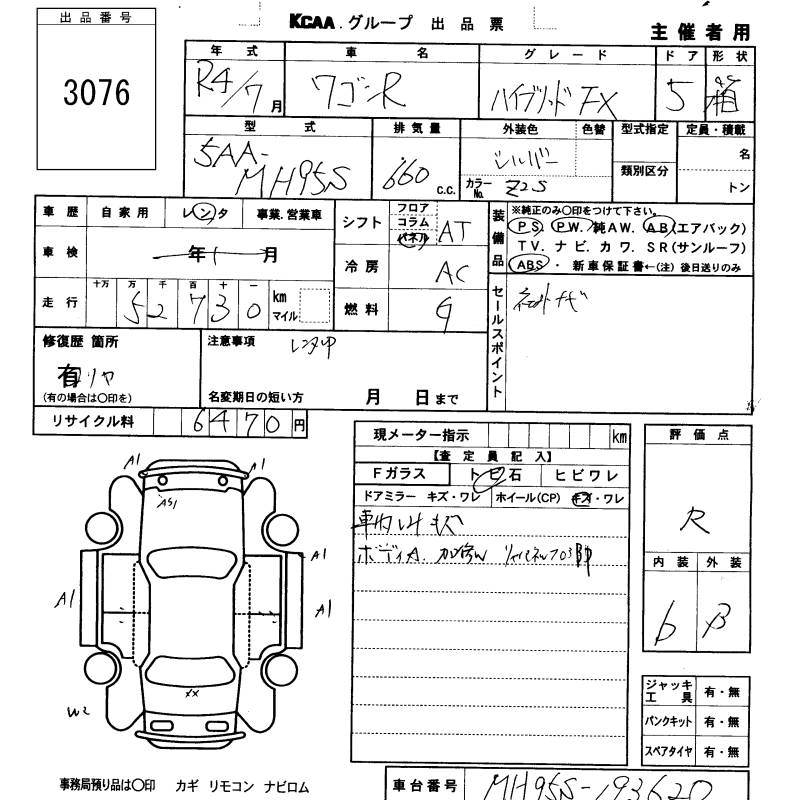 出品番号
3076
KCAA.グループ 出品票
主催者用
年式 車名 グレード ドア 形状
R4/7月 ワゴンR ハイブリッド FX 5 箱
型式 排気量 外装色 色替 型式指定 定員・積載
5AA-MH95S 660 c.c. シルバー 類別区分 名
カラーNo. Z2S トン
車歴 自家用 レンタ 事業.営業車
車検 年 月
走行 十万 万 千 百 十 一
52730 km マイル
シフト フロア コラム パネル AT
冷房 AC
燃料 G
装備品
※純正のみ〇印をつけて下さい。
PS. PW. 純AW. AB(エアバック)
TV. ナビ. カワ. SR(サンルーフ)
ABS・新車保証書←(注)後日送りのみ
セールスポイント
修復歴 箇所
有 リヤ
(有の場合は〇印を)
注意事項 レンタup
名変期日の短い方 月 日まで
リサイクル料 6470円
現メーター指示 km
【査定員記入】
Fガラス トビ石 ヒビワレ
ドアミラー キズ・ワレ ホイール(CP) キズ・ワレ
車内 キズ
ボディA.
評価点
R
内装 外装
b β
A1 A1
AS1
A1
A1 A1
XX
W2
ジャッキ工具 有・無
パンクキット 有・無
スペアタイヤ 有・無
事務局預り品は〇印 カギ リモコン ナビロム
車台番号 MH95S-193620